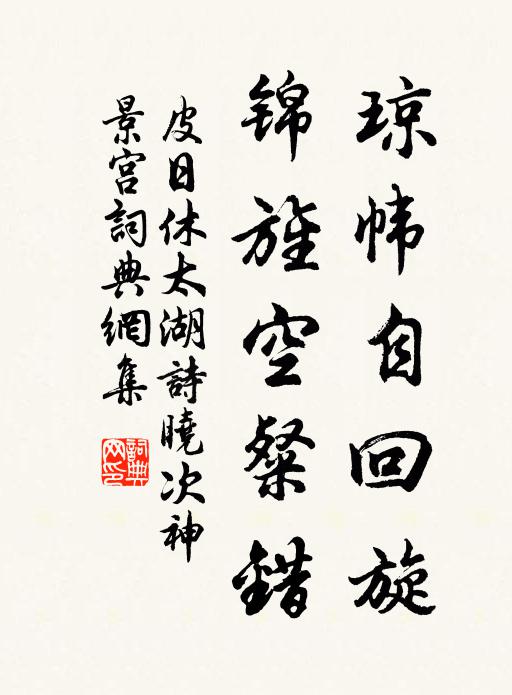 琼帏自回旋
锦旌空粲錯
皮日休太湖詩曉次神
景宫詞典網集
詞典網印